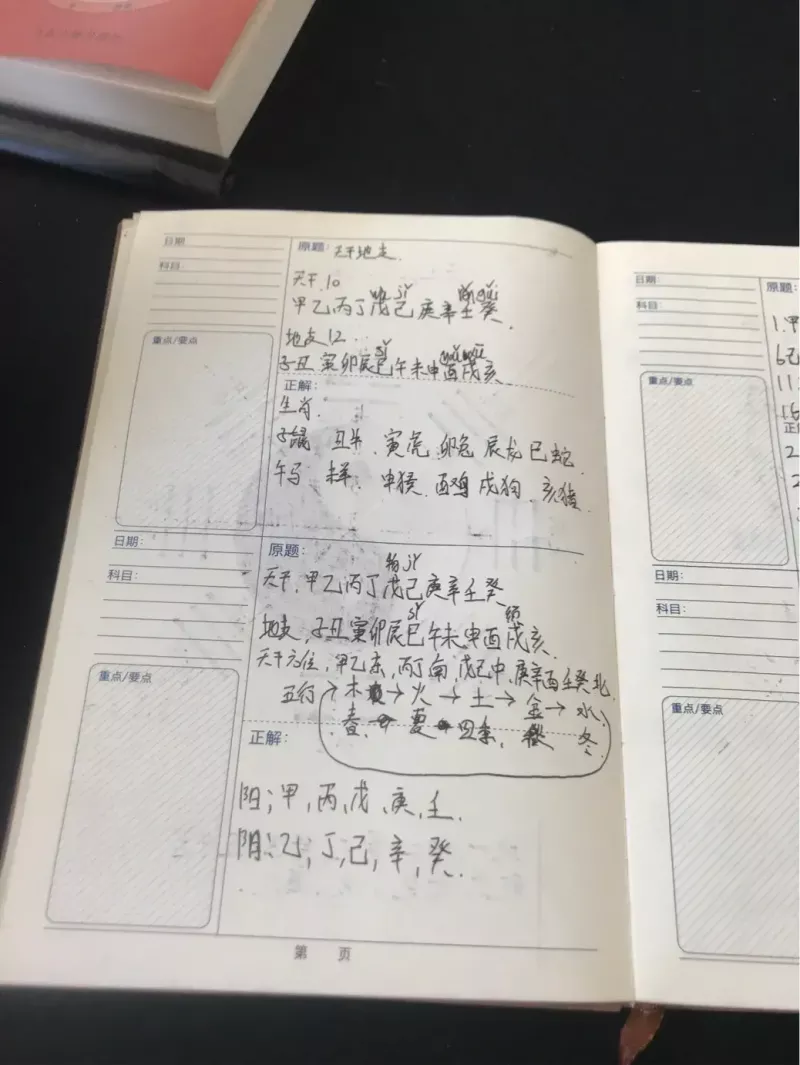 日期
科目:
重点/要点
原题: 天干地支.
天干.10
wu jǐ rén guǐ
甲乙丙丁戊己庚辛壬癸.
地支12..
sì
子丑寅卯辰巳午未申酉戌亥.
正解:
生肖.
子鼠 丑牛. 寅虎. 卯兔. 辰龙 巳蛇.
午马 未羊. 申猴. 酉鸡 戌狗. 亥猪
日期:
科目:
重点/要点
原题:
jǐ
天干, 甲乙丙丁戊己庚辛壬癸
sì
地支, 子丑寅卯辰巳午未申酉戌亥.
天干方位, 甲乙东, 丙丁南, 戊己中, 庚辛西 壬癸北.
五行 木 → 火 → 土 → 金 → 水.
春. 夏 四季. 秋 冬.
正解:
阳; 甲, 丙, 戊, 庚, 壬.
阴; 乙, 丁, 己, 辛, 癸.
第 页
日期:
科目:
重点/要点
原题:
1.甲
11:
日期:
科目:
重点/要点